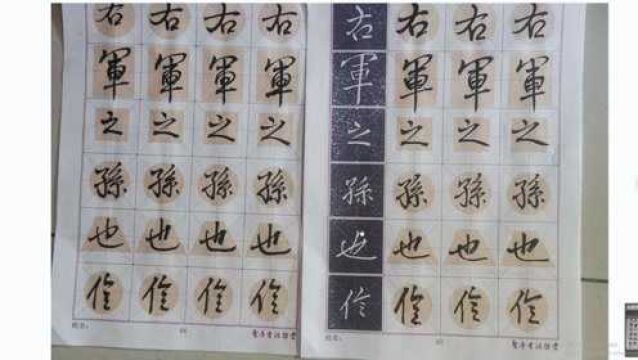 右 右 右 右 右 右 右 右
軍 軍 軍 軍 軍 軍 軍 軍
之 之 之 之 之 之 之 之
孫 孫 孫 孫 孫 孫 孫 孫
也 也 也 也 也 也 也 也